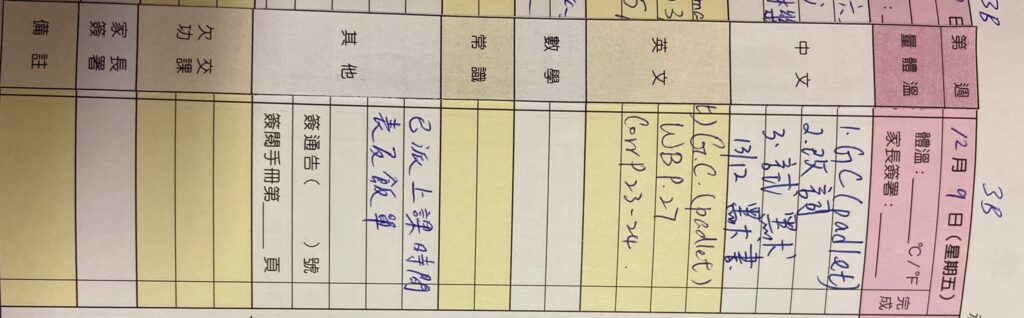 3B
第 週 12月9日(星期五)
量體溫 體溫:____℃/℉
家長簽署:____ 完成
中文 1. GC(padlet)
2. 改詞
3. 試
13/12 書
英文 G.C.(padlet)
WB P.27
Corr P23-24.
數學
常識
其他 已派上課時間
表及飯單
簽通告( )號
簽閱手冊第____頁
欠交功課
家長簽署
備註
3B